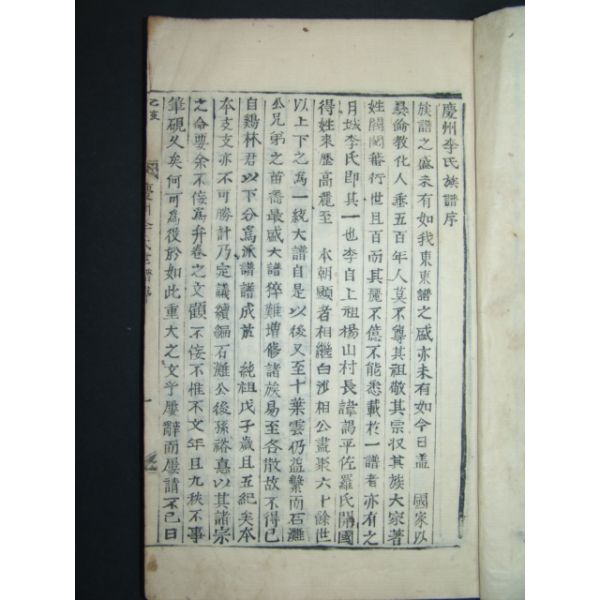 慶州李氏族譜序
族譜之盛未有如我東東譜之盛亦未有如今日盖 國家以
彛倫敎化人垂五百年人莫不尊其祖敬其宗收其族大家著
姓閥閱蕃衍世且百而其麗不億不能悉載於一譜者亦有之
月城李氏卽其一也李自上祖楊山村長諱謁平佐羅氏開國
得姓來歷高麗至 本朝顯者相繼白沙相公盡聚六十餘世
以上下之爲一統大譜自是以後又至十葉雲仍益繁而石灘
公兄弟之苗裔最盛大譜猝難增修諸族易至各散故不得已
自鷄林君以下分爲派譜譜成於 純祖戊子歲且五紀矣本
本支支亦不可勝計乃定議續編石灘公後孫裕憙以其諸宗
之命要余不侫爲弁卷之文顧不侫不惟不文年且九秩不事
筆硯久矣何可爲役於如此重大之文乎屢辭而屢請不已曰
慶州李氏世譜序
一